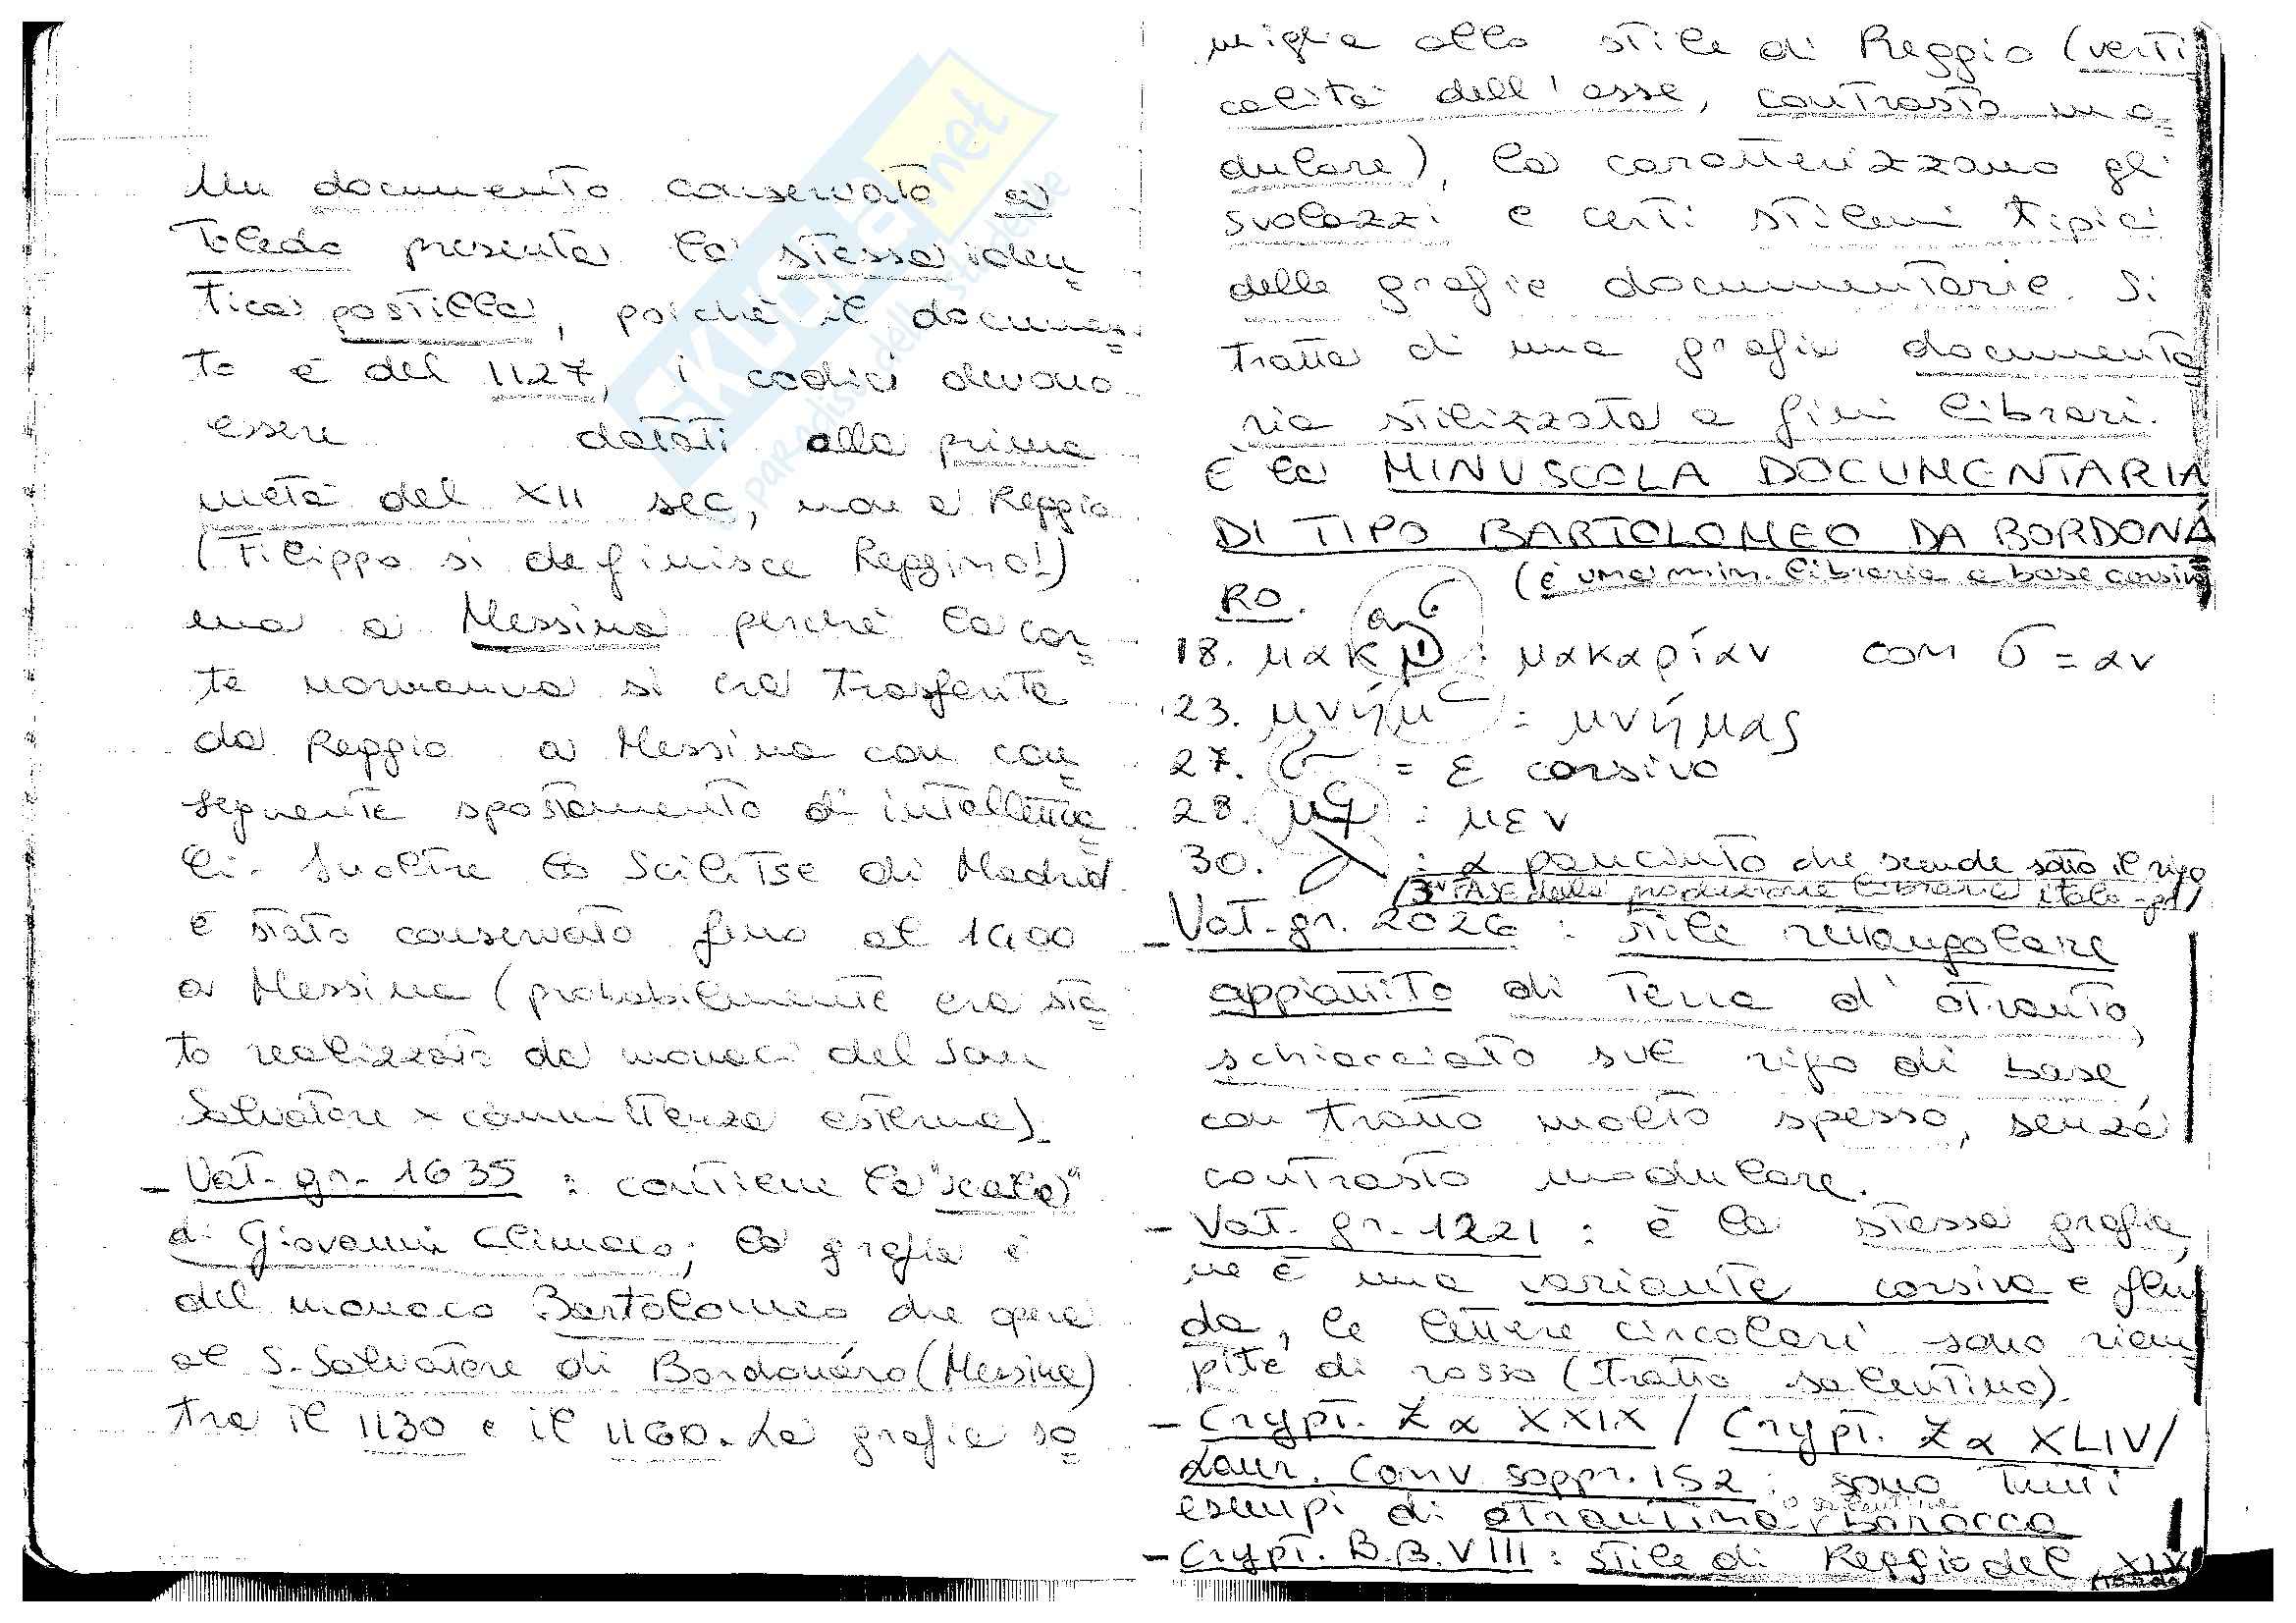 Un documento conservato a
Toledo presenta la stessa iden=
tica postilla, poiché il documen=
to è del 1127, i codici devono
essere datati alla prima
metà del XII sec, non a Reggio
(Filippo si definisce Reggino!)
ma a Messina perché la cor=
te normanna si era trasferita
da Reggio a Messina con con=
seguente spostamento di intellettua=
li. Inoltre lo Scilitse di Madrid
è stato conservato fino al 1400
a Messina (probabilmente era sta=
to realizzato da monaci del San
Salvatore x committenza esterna).
- Vat. gr. 1635 : contiene la "scala"
di Giovanni Climaco; la grafia è
del monaco Bartolomeo che opera
al S. Salvatore di Bordonáro (Messina)
tra il 1130 e il 1160. La grafia so=
miglia allo stile di Reggio (verti
calità dell'asse, contrasto mo=
dulare), la caratterizzano gli
svolazzi e certi stilemi tipici
delle grafie documentarie. Si
tratta di una grafia documenta=
ria stilizzata a fini librari.
È la MINUSCOLA DOCUMENTARIA
DI TIPO BARTOLOMEO DA BORDONÁ
RO. (è una min. libraria a base corsiva)
18. μακ : μακαρίαν con = αν
23. μνήμ = μνήμας
27. = ε corsivo
28. : μεν
30. : α panciuto che scende sotto il rigo
(3ª FASE della produzione libraria italo-gr)
- Vat. gr. 2026 : stile rettangolare
appiattito di Terra d'Otranto,
schiacciato sul rigo di base,
con tratto molto spesso, senza
contrasto modulare.
- Vat. gr. 1221 : è la stessa grafia,
ne è una variante corsiva e flui
da, le lettere circolari sono riem=
pite di rosso (tratto salentino).
- Crypt. Z α XXIX / Crypt. Z α XLIV /
Laur. Conv. soppr. 152 : sono tutti
esempi di otrantina o salentina barocca
- Crypt. B.β.VIII : stile di Reggio del